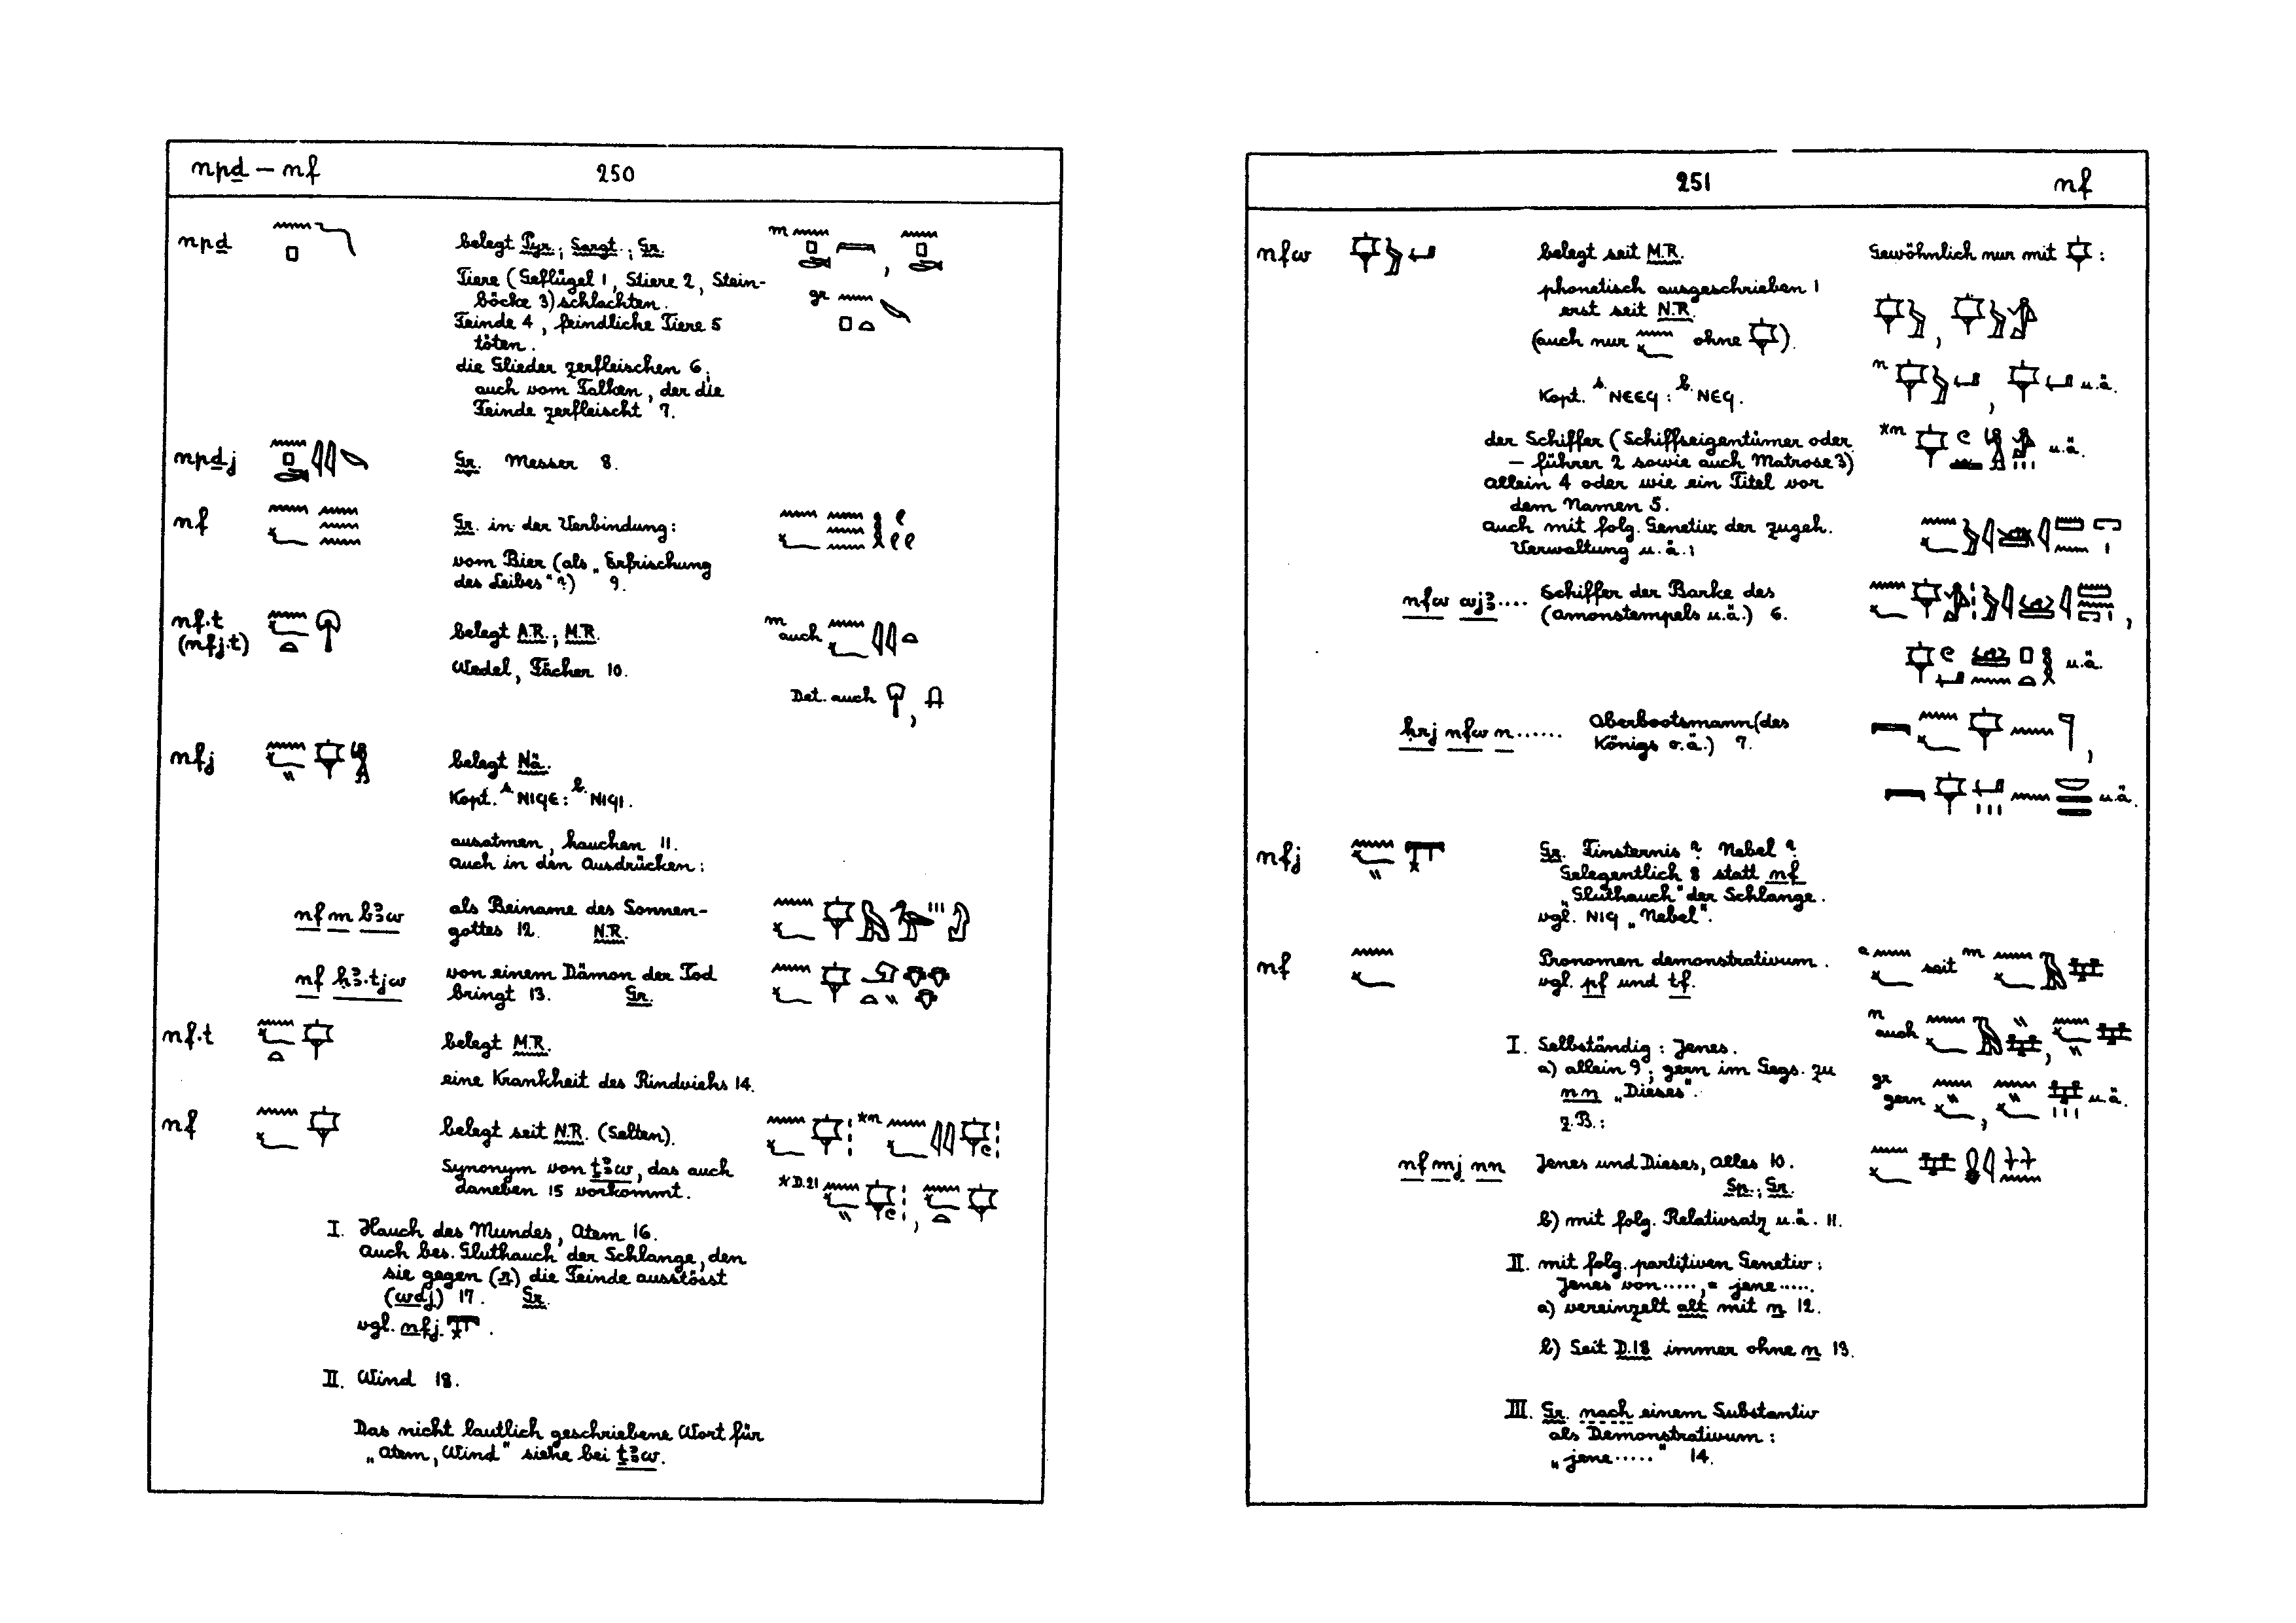 npḏ – nf 250
npḏ
belegt Pyr.; Sargt.; Gr.
Tiere (Geflügel 1, Stiere 2, Stein-
böcke 3) schlachten.
Feinde 4, feindliche Tiere 5
töten.
die Glieder zerfleischen 6;
auch vom Falken, der die
Feinde zerfleischt 7.
m
gr
npḏj
Gr. Messer 8.
nf
Gr. in der Verbindung:
vom Bier (als „Erfrischung
des Leibes“?) 9.
nf·t
(nfj·t)
belegt A.R.; M.R.
Wedel, Fächer 10.
m
auch
Det. auch
nfj
belegt Nä.
Kopt. s. ⲚⲒϤⲈ: b. ⲚⲒϤⲒ.
ausatmen, hauchen 11.
auch in den Ausdrücken:
nf m bꜣw als Beiname des Sonnen-
gottes 12. N.R.
nf ḫꜣ·tjw von einem Dämon der Tod
bringt 13. Gr.
nf·t
belegt M.R.
eine Krankheit des Rindviehs 14.
nf
belegt seit N.R. (Selten).
Synonym von ṯꜣw, das auch
daneben 15 vorkommt.
*n
*D.21
I. Hauch des Mundes, Atem 16.
Auch bes. Gluthauch der Schlange, den
sie gegen (r) die Feinde ausstösst
(wdj) 17. Gr.
vgl. nfj.
II. Wind 18.
Das nicht lautlich geschriebene Wort für
„Atem, Wind“ siehe bei ṯꜣw.
251 nf
nfw
belegt seit M.R.
phonetisch ausgeschrieben 1
erst seit N.R.
(auch nur ohne ).
Kopt. s. ⲚⲈⲈϤ: b. ⲚⲈϤ.
Gewöhnlich nur mit :
n
u.ä.
*n u.ä.
der Schiffer (Schiffseigentümer oder
– führer 2 sowie auch Matrose 3)
allein 4 oder wie ein Titel vor
dem Namen 5.
auch mit folg. Genetiv der zugeh.
Verwaltung u.ä.:
nfw wjꜣ.... Schiffer der Barke des
(Amonstempels u.ä.) 6.
u.ä.
ḥrj nfw n...... Oberbootsmann (des
Königs o.ä.) 7.
u.ä.
nfj
Gr. Finsternis? Nebel?
Gelegentlich 8 statt nf
„Gluthauch“ der Schlange.
vgl. ⲚⲒϤ „Nebel“.
nf
Pronomen demonstrativum.
vgl. pf und tf.
a seit m
n
auch
gr
gern u.ä.
I. Selbständig: Jenes.
a) allein 9; gern im Gegs. zu
nn „Dieses“.
z.B.:
nf mj nn Jenes und Dieses, Alles 10.
Sp.; Gr.
b) mit folg. Relativsatz u.ä. 11.
II. mit folg. partitiven Genetiv:
Jenes von....., = jene.....
a) vereinzelt alt mit n 12.
b) Seit D.18 immer ohne n 13.
III. Gr. nach einem Substantiv
als Demonstrativum:
„jene.....“ 14.